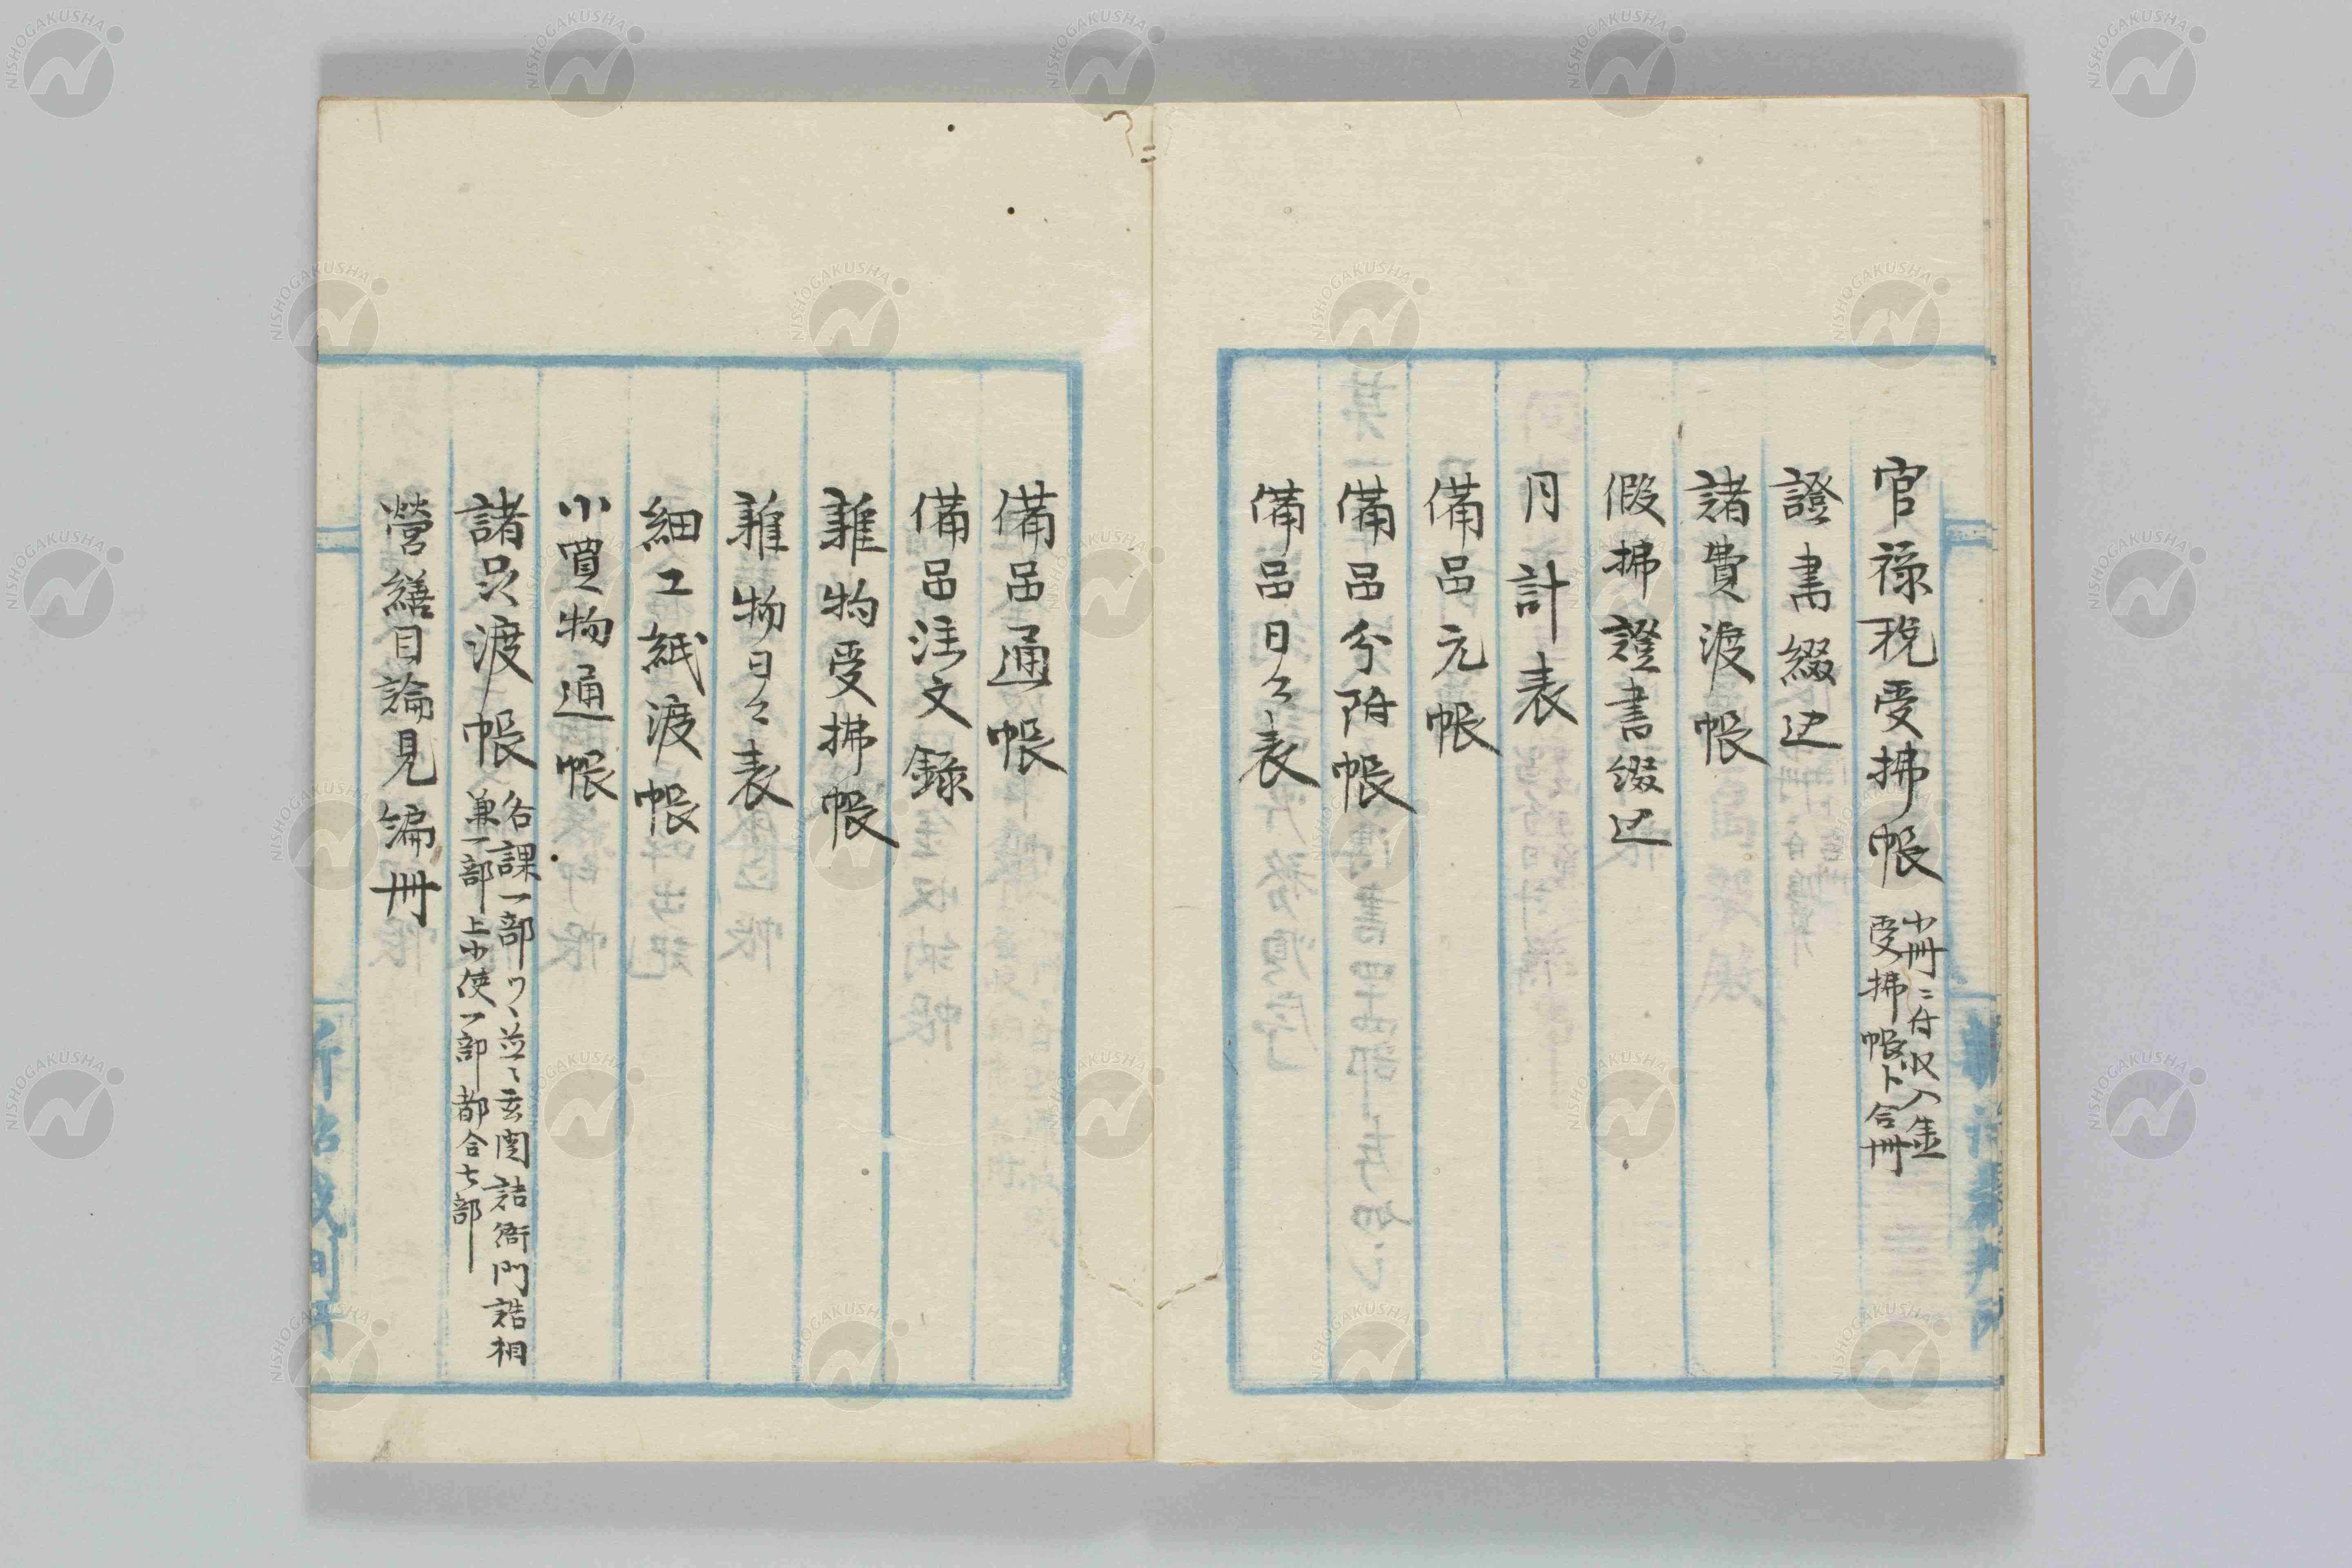 官禄税受拂帳 小冊ニ付収入金
受拂帳ト合冊
證書綴込
諸費渡帳
假拂證書綴込
月計表
備品元帳
備品分附帳
備品日々表
備品通帳
備品注文錄
雜物受拂帳
雜物日々表
細工紙渡帳
小買物通帳
諸品渡帳 各課一部ツヽ並ニ玄関詰衛門詰相
兼一部上小使一部都合七部
營繕目論見編冊
NISHOGAKUSHA